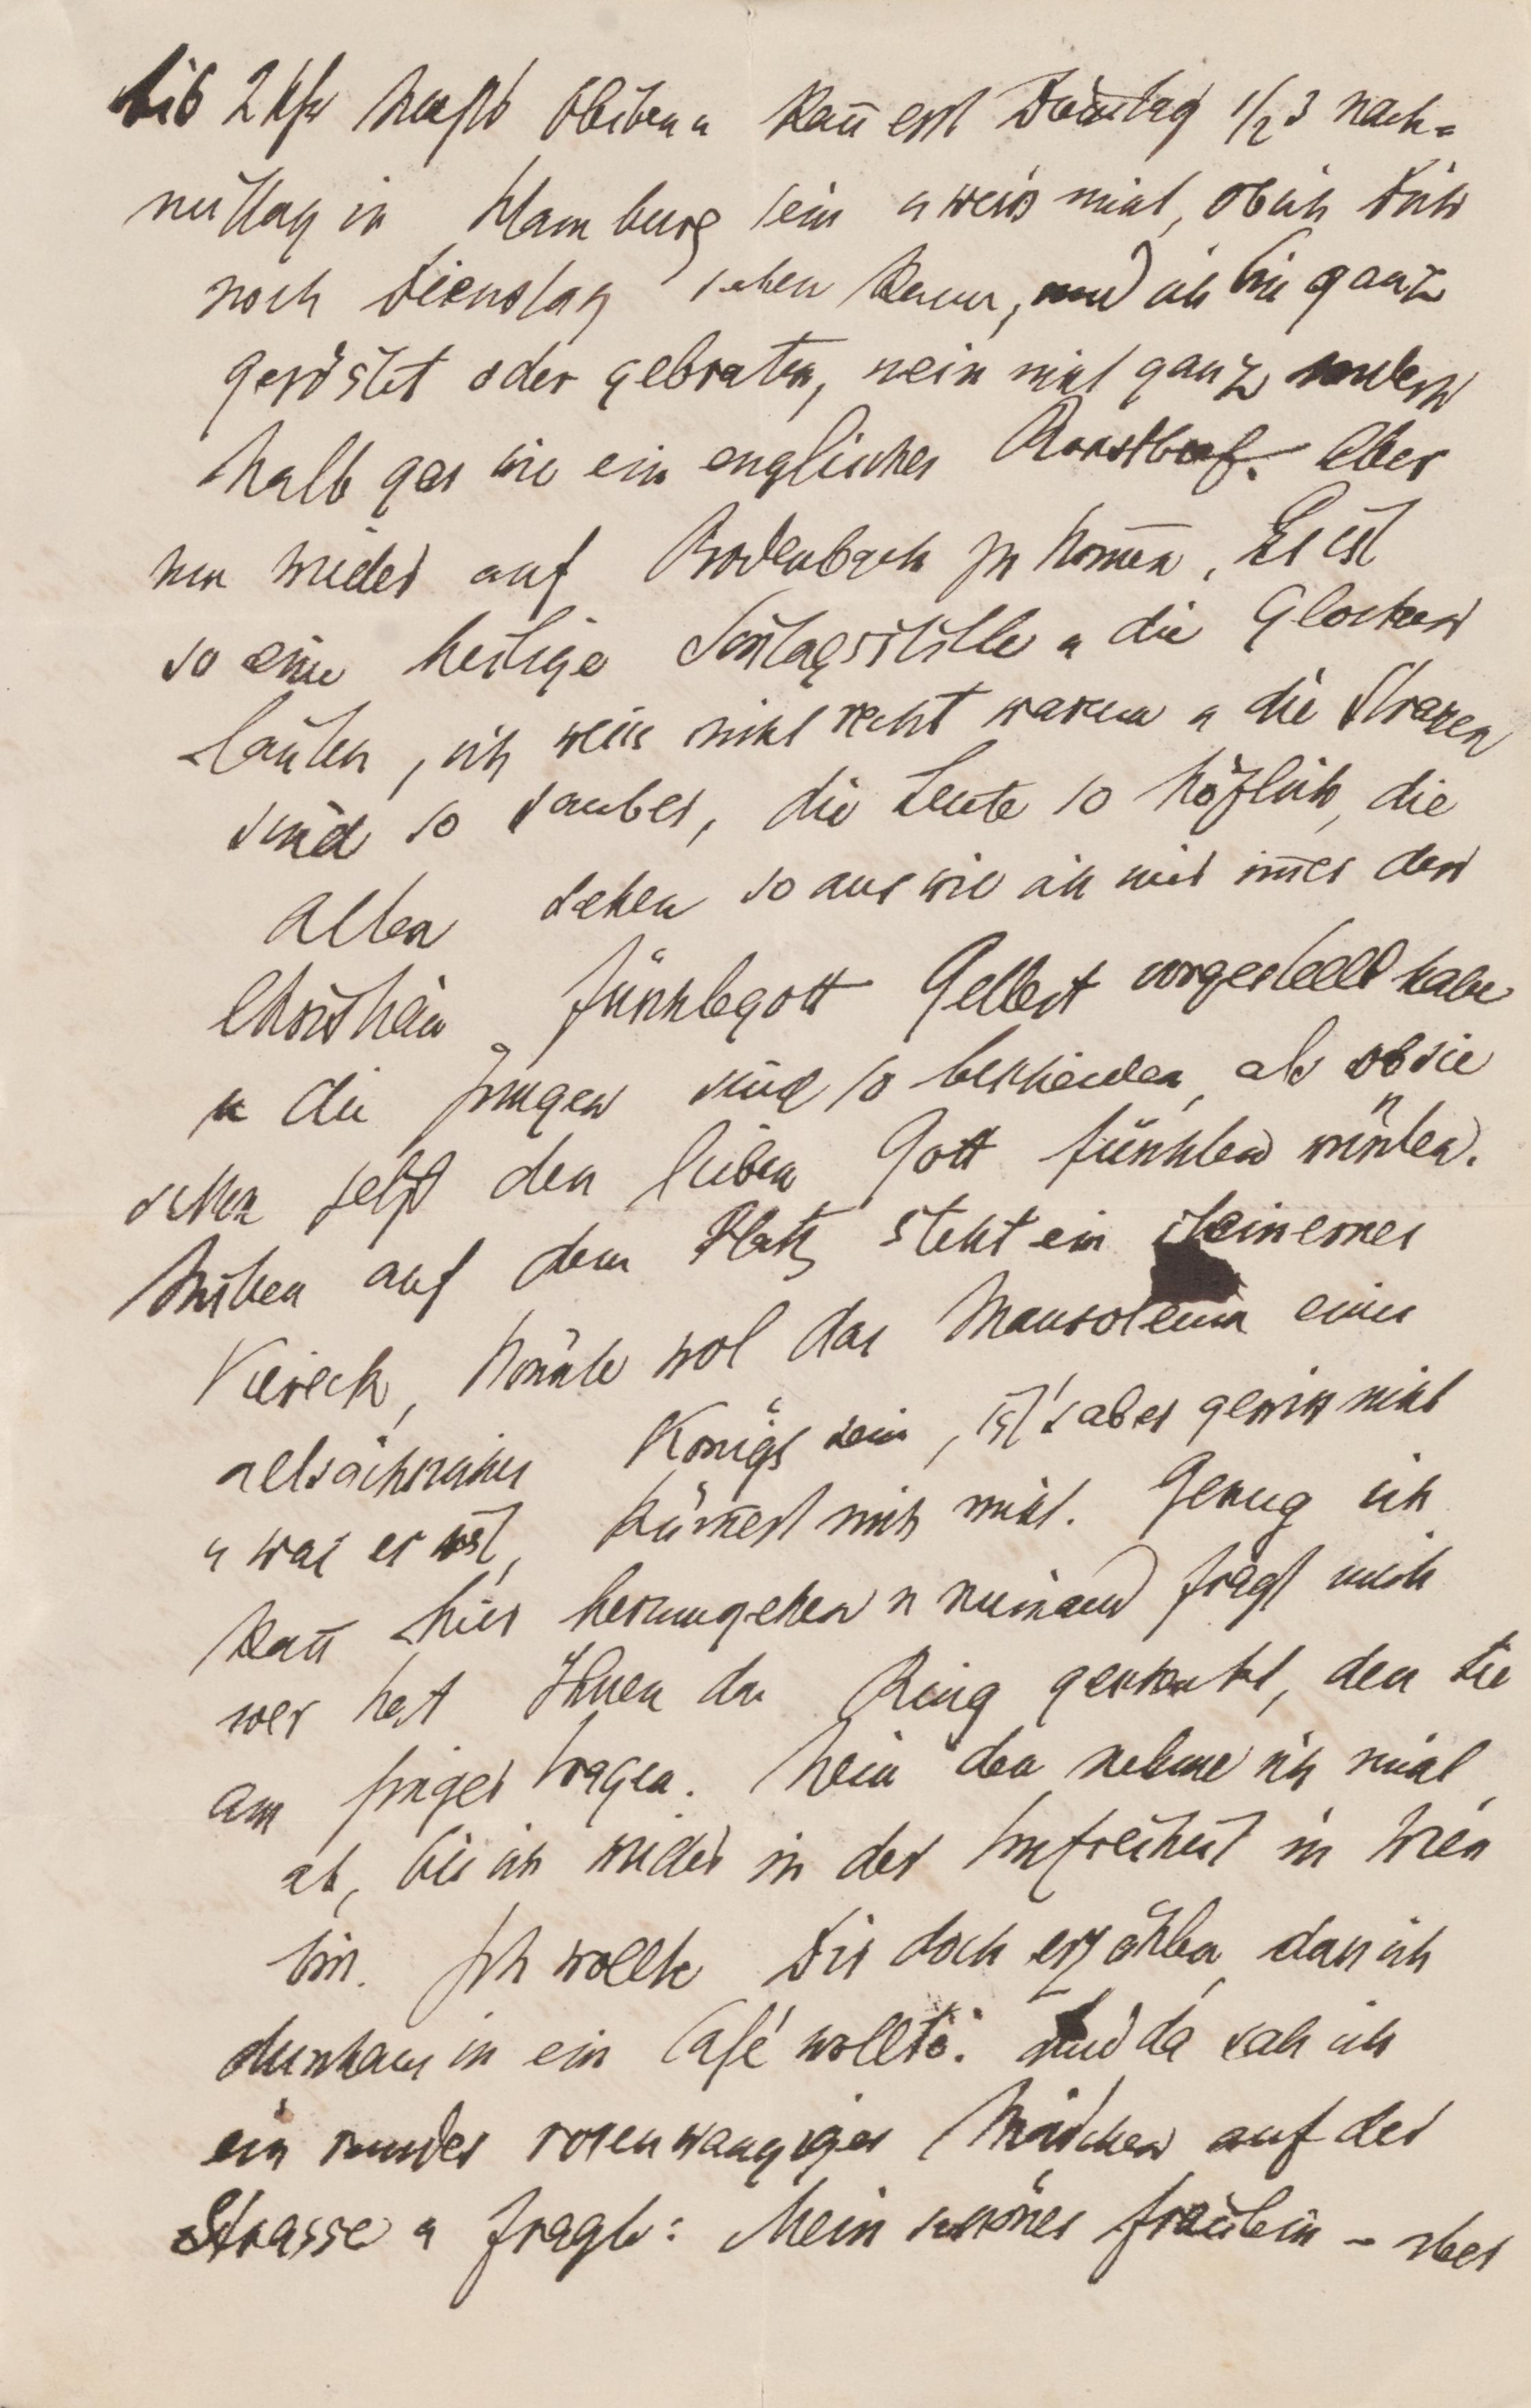 bis 2 Uhr Nachts bleiben u kan̄ erst Dienstag 1/2 3 nach=
mittag in Hamburg sein u weiss nicht, ob ich Dich
noch Dienstag sehen kann, und ich bin ganz
geröstet oder gebraten, nein nicht ganz sondern
halb gar wie ein englisches Roastbeef. Aber
nun wieder auf Bodenbach zu kom̄en. Es ist
so eine heilige Son̄tagsstille u die Glocken
läuten, ich weiss nicht recht warum u die Strassen
sind so sauber, die Leute so höflich, die
Alten sehen so aus wie ich mir im̄er den
Christian Fürchtegott Gellert vorgestellt habe
u die Jungen sind so bescheiden, als ob sie
schon selbst den lieben Gott fürchten würden.
Drüben auf dem Platz steht ein steinernes
Viereck, kön̄te wol das Mausoleum eines
altsächsischen Königs sein, ist's aber gewiss nicht
u was es ist, küm̄ert mich nicht. Genug ich
kan̄ hier herumgehen u niemand fragt mich
wer hat Ihnen den Ring geschenkt, den Sie
am Finger tragen. Nein den nehme ich nicht
ab, bis ich wieder in der Unfreiheit in Wien
bin. Ich wollte Dir doch erzählen, dass ich
durchaus in ein Café wollte. Und da sah ich
ein rundes rosenwangiges Mädchen auf der
Strasse u fragte: Mein schönes Fräulein – aber